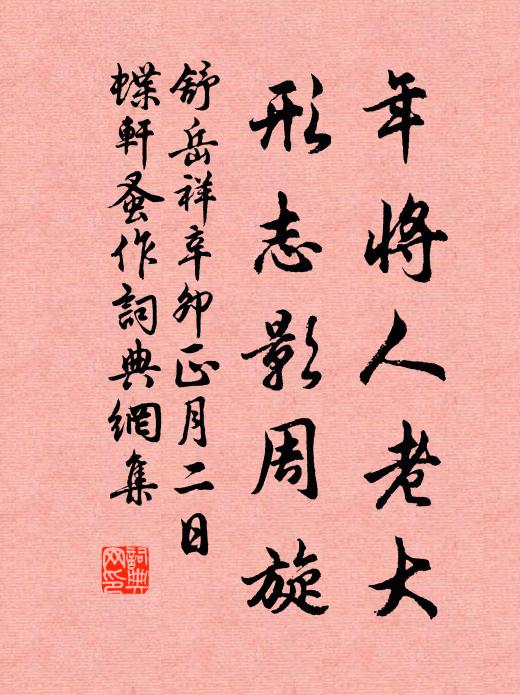 年將人老大
形志影周旋
舒岳祥辛卯正月二日
蝶軒蚤作詞典網集
詞典網印